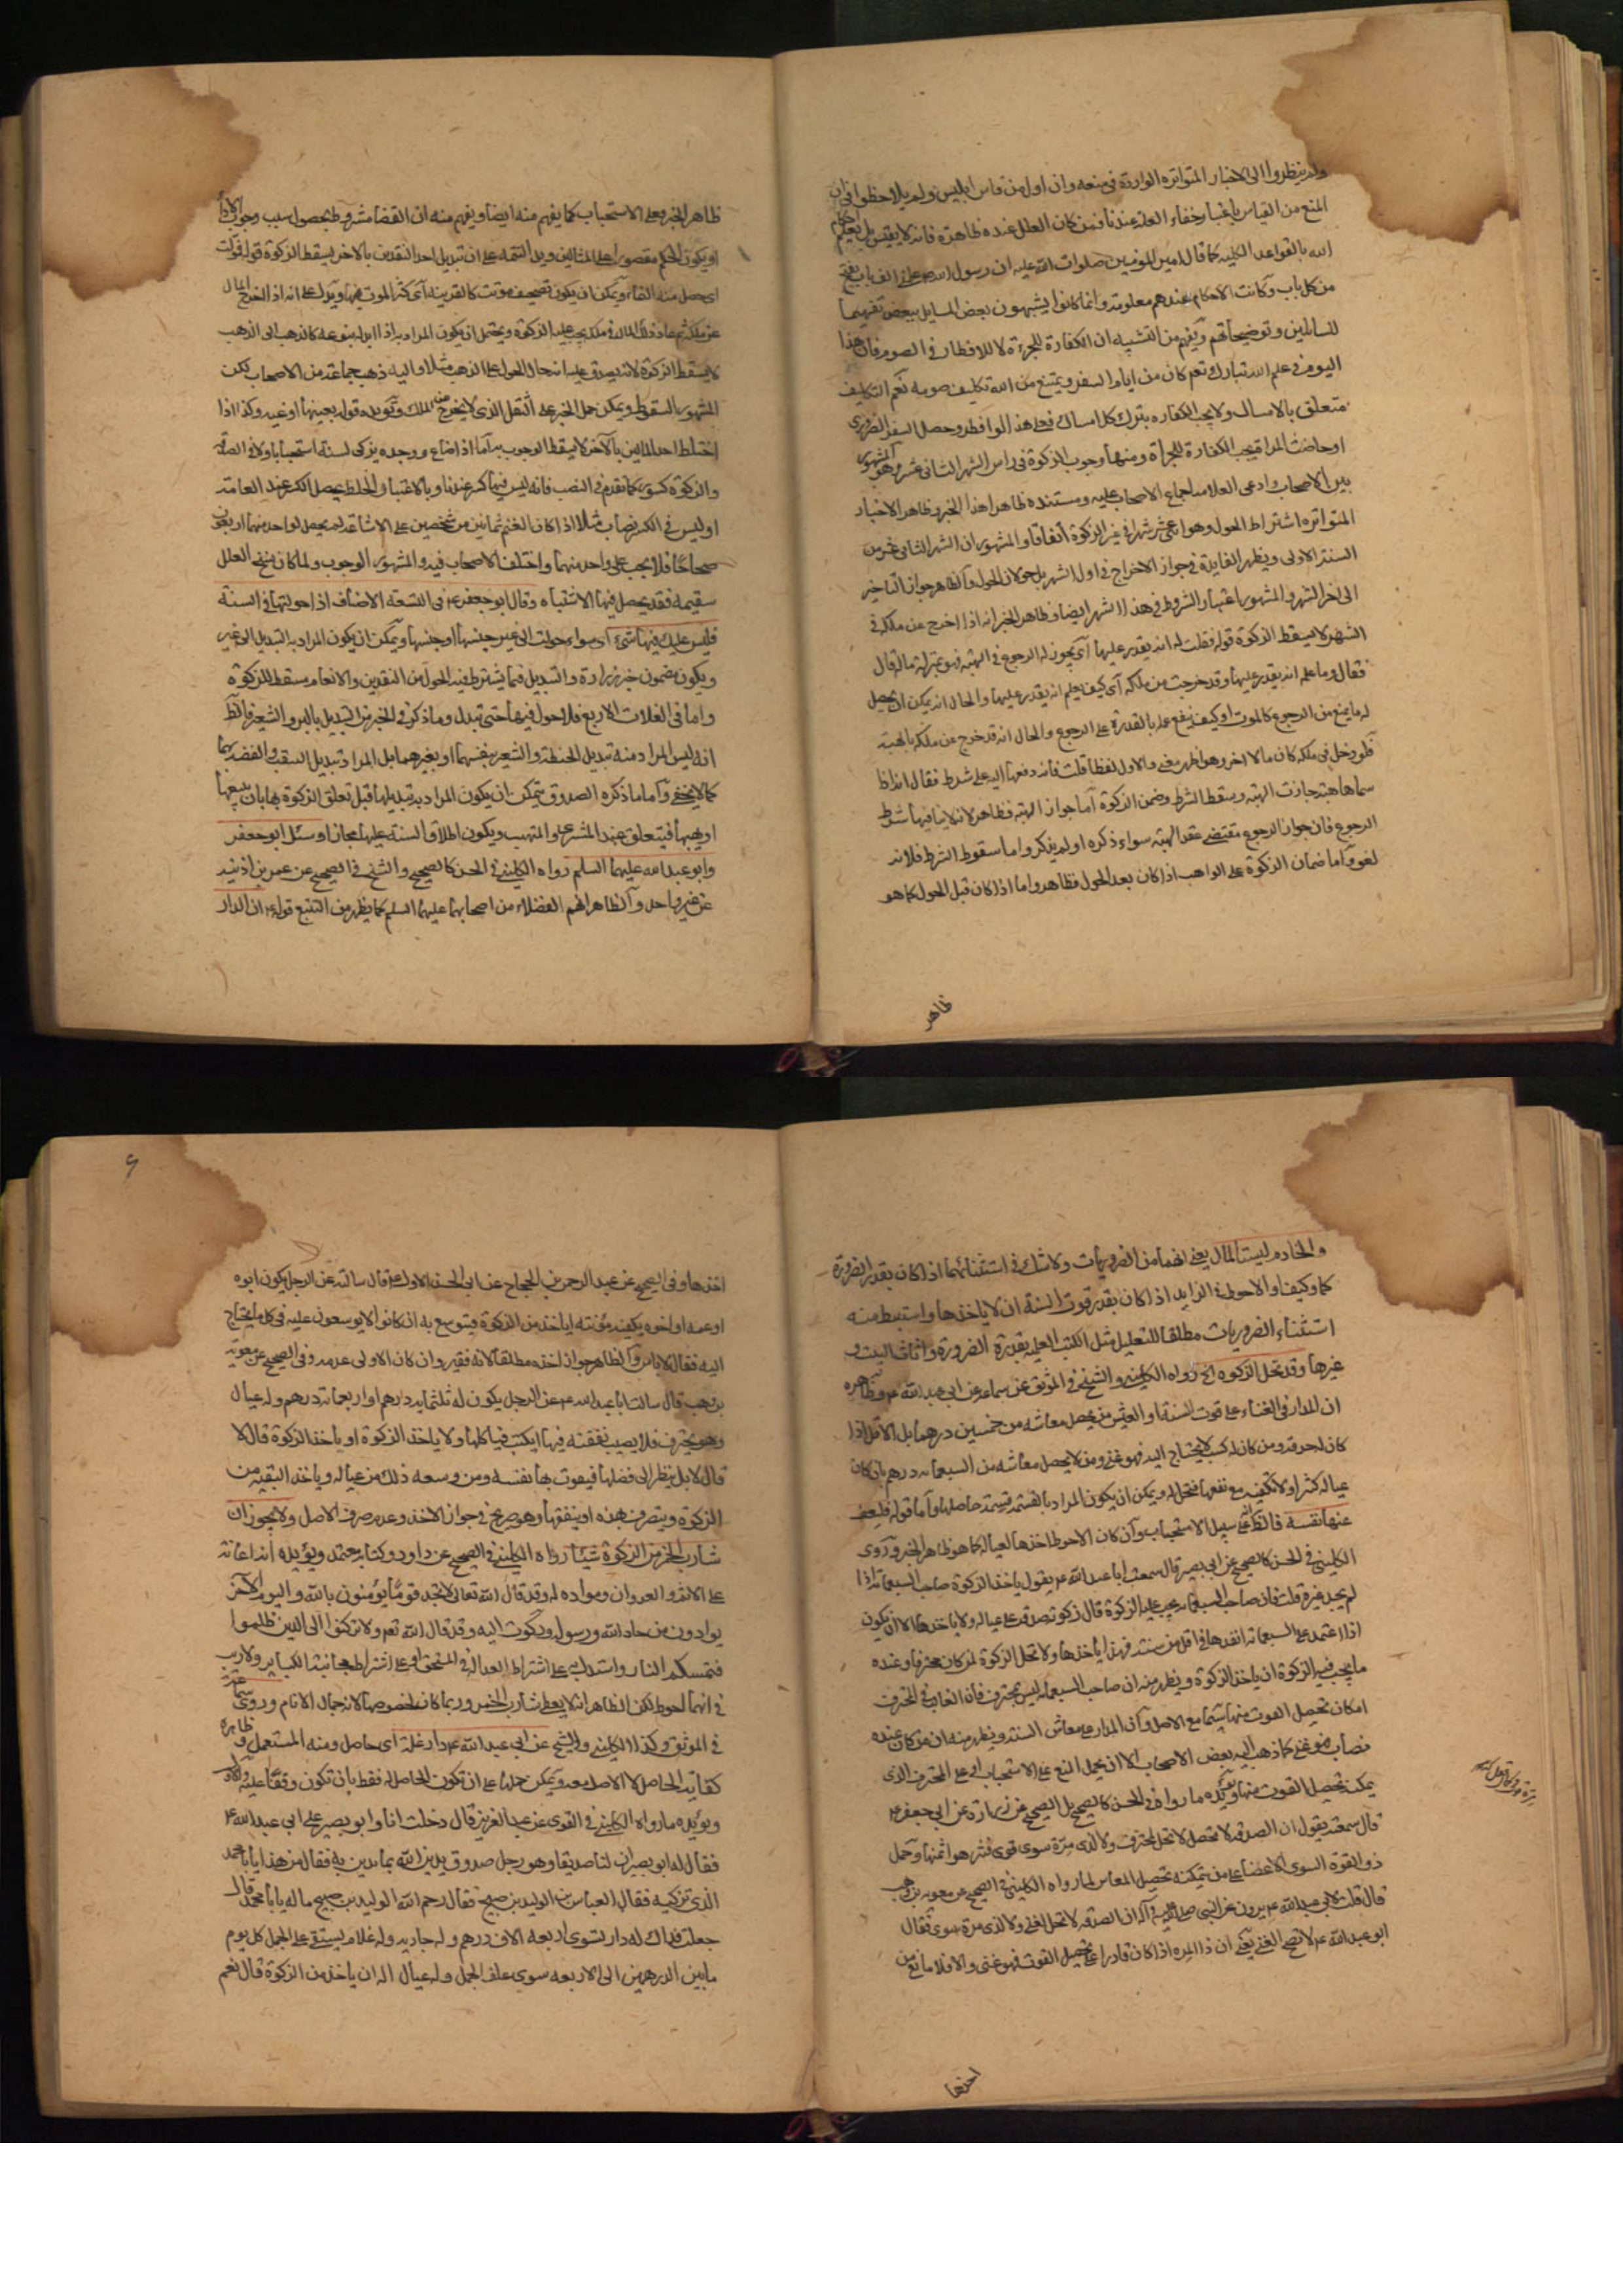 ولم ينظروا الى الاخبار المتواتره الواردة في منعه وان اول من قاس ابليس ولم يلاحظوا فان
المنع من القياس باعتبار خفاء العلة عندنا فمن كان العلل عنده ظاهرة فانه لا يقيس بل يعلم احكام
الله بالقواعد الكليه كما قال امير المؤمنين صلوات الله عليه ان رسول الله ص علمني الف باب يفتح
من كل باب وكانت الاحكام عندهم معلومة وانما كانوا يشبهون بعض المسايل ببعض تفهيما
للسائلين وتوضيحا لهم ويفهم من التشبيه ان الكفارة للجرءة لا للافطار في الصوم فان هذا
اليوم في علم الله تبارك وتعم كان من ايام السفر ويمتنع من الله تكليف صومه نعم التكليف
متعلق بالامساك ولا يجب الكفاره بترك كل امساك فعلى هذا لو افطر وحصل السفر الضروري
او حاضت المراة يجب الكفارة للجرأة ومنها وجوب الزكوة في راس الشهر الثاني عشر وهو المشهور
بين الاصحاب وادعى العلامه اجماع الاصحاب عليه ومستنده ظاهرا هذا الخبر وظاهر الاخبار
المتواتره اشتراط الحول وهو اثنى عشر شهرا في غير الزكوة اتفاقا والمشهور ان الشهر الثاني عشر من
السنة الاولى ويظهر الفايدة في جواز الاخراج في اول الشهر بل حولان الحول والظاهر جواز التاخير
الى اخر الشهر والمشهور اعتبار الشروط في هذا الشهر ايضا وظاهر الخبر انه اذا اخرج عن ملكه في
الشهر لا يسقط الزكوة قوله فقلت له انه يقدر عليها اي يجوز له الرجوع في الهبة فهو بمنزلة ماله قال
فقال وما علمه انه يقدر عليها وقد خرجت من ملكه اي كيف يعلم انه يقدر عليها والحال انه يمكن ان يحصل
له ما يمنع من الرجوع كالموت او كيف ينفع علمه بالقدرة على الرجوع والحال انه قد خرج عن ملكه بالهبة
فلو دخل في ملكه كان مالا اخر وهو اظهر معنى والاول لفظا قلت فانه دفعها اليه على شرط فقال انه اذا
سماها هبة جازت الهبة وسقط الشرط وضمن الزكوة اما جواز الهبة فظاهر لانه لا ينافيها شرط
الرجوع فان جواز الرجوع مقتضى عقد الهبة سواء ذكره او لم يذكر واما سقوط الشرط فلانه
لغو واما ضمان الزكوة على الواهب اذا كان بعد الحول فظاهر واما اذا كان قبل الحول كما هو
ظاهر
ظاهر الخبر فعلى الاستحباب كما يفهم منه ايضا ويفهم منه ان القضا مشروط بحصول سبب وجوب الاداء
او يكون الحكم مقصورا على المثالين ويدل التتمه على ان تبديل احد النقدين بالاخر يسقط الزكوة قوله فولت
اي حصل منه النماء ويمكن ان يكون تصحيف موتت كالقرينه اي كثر الموت فيها ويدل على انه اذا اخرج المال
عن ملكه ثم عاد ذلك المال في ملكه يجب عليه الزكوة ويحتمل ان يكون المراد به اذا ابدله بنوعه كالذهب الى الذهب
لا يسقط الزكوة لانه يصدق عليه انه حال الحول على الذهب مثلا واليه ذهب جماعة من الاصحاب لكن
المشهور السقوط ويمكن حمل الخبر على النقل الذي لا يخرج عن الملك ويؤيده قوله بعينها او غيره وكذا اذا
اختلط احد المالين بالآخر لا يسقط الوجوب به اما اذا ضاع ووجده يزكى لسنة استحبابا ولا في الصدقة
والزكوة كسور كما تقدم في النصب فانه ليس فيها كسر عندنا وبالاعتبار الخلط يحصل الكسر عند العامة
او ليس في الكسر نصاب مثلا اذا كان الغنم ثمانين من شخصين على الاشاعة لم يحصل لواحد منهما اربعون
صحاحا فلا يجب على واحد منهما واختلف الاصحاب فيه والمشهور الوجوب ولما كان نسخ العلل
سقيمه فقد يحصل فيها الاشتباه وقال ابو جعفر ع في التسعة الاصناف اذا حولتها في السنة
فليس عليك فيها شيء اي سواء حولت الى غير جنسها او جنسها ويمكن ان يكون المراد به التبديل الى غير
ويكون مضمون خبر زرارة والتبديل فيما يشترط فيه الحول من النقدين والانعام مسقط للزكوة
واما في الغلات الاربع فلا حول فيها حتى تبدل وما ذكر في الخبر من التبديل بالبر والشعير فالظ
انه ليس المراد منه تبديل الحنطة والشعير بنفسهما او بغيرهما بل المراد تبديل الذهب والفضه بهما
كما لا يخفى واما ما ذكره الصدوق يتمكن ان يكون المراد به تبديلها قبل تعلق الزكوة بها بان يبيعها
او يهبها فيتعلق عند المشتري او المتهب ويكون اطلاق السنة عليها مجازا وسئل ابو جعفر
وابو عبد الله عليهما السلم رواه الكليني في الحسن كالصحيح والشيخ في الصحيح عن عمر بن اذينه
عن غير واحد والظاهر انهم الفضلاء من اصحابهما عليهما السلم كما يظهر من التتبع قوله ع ان الدار
والخادم ليستا بمال يعنى انهما من الضروريات ولا شك في استثنائهما اذا كان بقدر الضرورة
كما وكيفا والاحوط في الزايد اذا كان بقدر قوت السنة ان لا ياخذها واستنبط منه
استثناء الضروريات مطلقا للتعليل مثل الكتب العلمية بقدر الضرورة واثاث البيت و
غيرها وقد تحل الزكوه الخ رواه الكليني والشيخ في الموثق عن سماعة عن ابي عبد الله ع وظاهره
ان المدار في الغناء على قوت السنة او العيش فمن يحصل معاشه من خمسين درهما بل الاقل اذا
كان له حرفة ومن كان له كسب لا يحتاج اليه فهو غني ومن لا يحصل معاشه من السبعمائه درهم بان كان
عياله كثيرا ولا تكفيه مع نفعها فتحل له ويمكن ان يكون المراد بالقسمة قسمة حاصلها واما قوله فليعف
عنها نفسه فالظ انه على سبيل الاستحباب وان كان الاحوط اخذها لعياله كما هو ظاهر الخبر وروى
الكليني في الحسن كالصحيح عن ابي بصير قال سمعت ابا عبد الله ع يقول ياخذ الزكوة صاحب السبعمائة اذا
لم يجد غيره قلت فان صاحب السبعمائه يجب عليه الزكوة قال زكوته صدقة على عياله ولا ياخذها الا ان يكون
اذا اعتمد على السبعمائة انفدها في اقل من سنة فهذا ياخذها ولا تحل الزكوة لمن كان محترفا وعنده
ما يجب فيه الزكوة ان ياخذ الزكوة ويظهر منه ان صاحب السبعمائه ليس بمحترف فان الغالب في المحترف
امكان تحصيل القوت منها سيما مع الاصل وان المدار على معاش السنة ويظهر منه ان من كان عنده
نصاب فهو غني كما ذهب اليه بعض الاصحاب الا ان يحمل المنع على الاستحباب او على المحترف الذي
يمكنه تحصيل القوت منها ويؤيده ما رواه في الحسن كالصحيح بل الصحيح عن زرارة عن ابي جعفر ع
قال سمعته يقول ان الصدقه لا تحل لمحترف ولا لذي مرة سوى قوى فتنزهوا عنها وحمل
ذو القوة السوى الاعضاء على من يتمكنه تحصيل المعاش لما رواه الكليني في الصحيح عن معويه بن وهب
قال قلت لابي عبد الله ع يروون عن النبي صلى الله عليه وآله ان الصدقه لا تحل لغني ولا لذي مرة سوى فقال
ابو عبد الله ع لا تصلح لغني يعنى ان ذا المره اذا كان قادرا على تحصيل القوت فهو غنى والا فلا مانع من
اخذها
اخذها وفي الصحيح عن عبد الرحمن بن الحجاج عن ابي الحسن الاول ع قال سالته عن الرجل يكون ابوه
او عمه او اخوه يكفيه مؤنته اياخذ من الزكوة فيتوسع به ان كانوا لا يوسعون عليه في كل ما يحتاج
اليه فقال لا باس والظاهر جواز اخذه مطلقا لانه فقير وان كان الاولى عدمه وفي الصحيح عن معويه
بن وهب قال سالت ابا عبد الله ع عن الرجل يكون له ثلثمايه درهم او اربعمائة درهم وله عيال
وهو يحترف فلا يصيب نفقته فيها ايكتب فياكلها ولا ياخذ الزكوة او ياخذ الزكوة قال لا
قال لا بل ينظر الى فضلها فيقوت بها نفسه ومن وسعه ذلك من عياله وياخذ البقية من
الزكوة ويتصرف بهذه او ينفقها وهو صريح في جواز الاخذ وعدم صرف الاصل ولا يجوز ان
شارب الخمر من الزكوة شيئا رواه الكليني في الصحيح عن داود وكتابه معتمد ويؤيده انه اعانة
على الاثم والعدوان ومواده له وقد قال الله تعالى لا تجد قوما يؤمنون بالله واليوم الآخر
يوادون من حاد الله ورسوله وركون اليه وقد قال الله تعم ولا تركنوا الى الذين ظلموا
فتمسكم النار واستدل به على اشتراط العدالة في المستحق او على اشتراط مجانبة الكباير ولا ريب
في انهما احوط لكن الظاهر انه لا يعطى شارب الخمر وربما كان لخصوصها لانه جمال الاثام وروى سماعة
في الموثق وكذا الكليني والشيخ عن ابي عبد الله ع دار غلة اي حاصل ومنه المستعمل وظاهره
كفاية الحاصل لا الاصل معه ويمكن حملها على ان تكون الحاصل له فقط بان تكون وقفا عليه
ويؤيده ما رواه الكليني في القوى عن عبد العزيز قال دخلت انا وابو بصير على ابي عبد الله ع
فقال له ابو بصير ان لنا صديقا وهو رجل صدوق يدين الله بما ندين به فقال من هذا يا ابا محمد
الذي تزكيه فقال العباس بن الوليد بن صبيح فقال رحم الله الوليد بن صبيح ماله يا ابا محمد قال
جعلت فداك له دار تسوى اربعة الاف درهم وله جاريه وله غلام يستقى على الجمل كل يوم
ما بين الدرهمين الى الاربعه سوى علف الجمل وله عيال اله ان ياخذ من الزكوة قال نعم